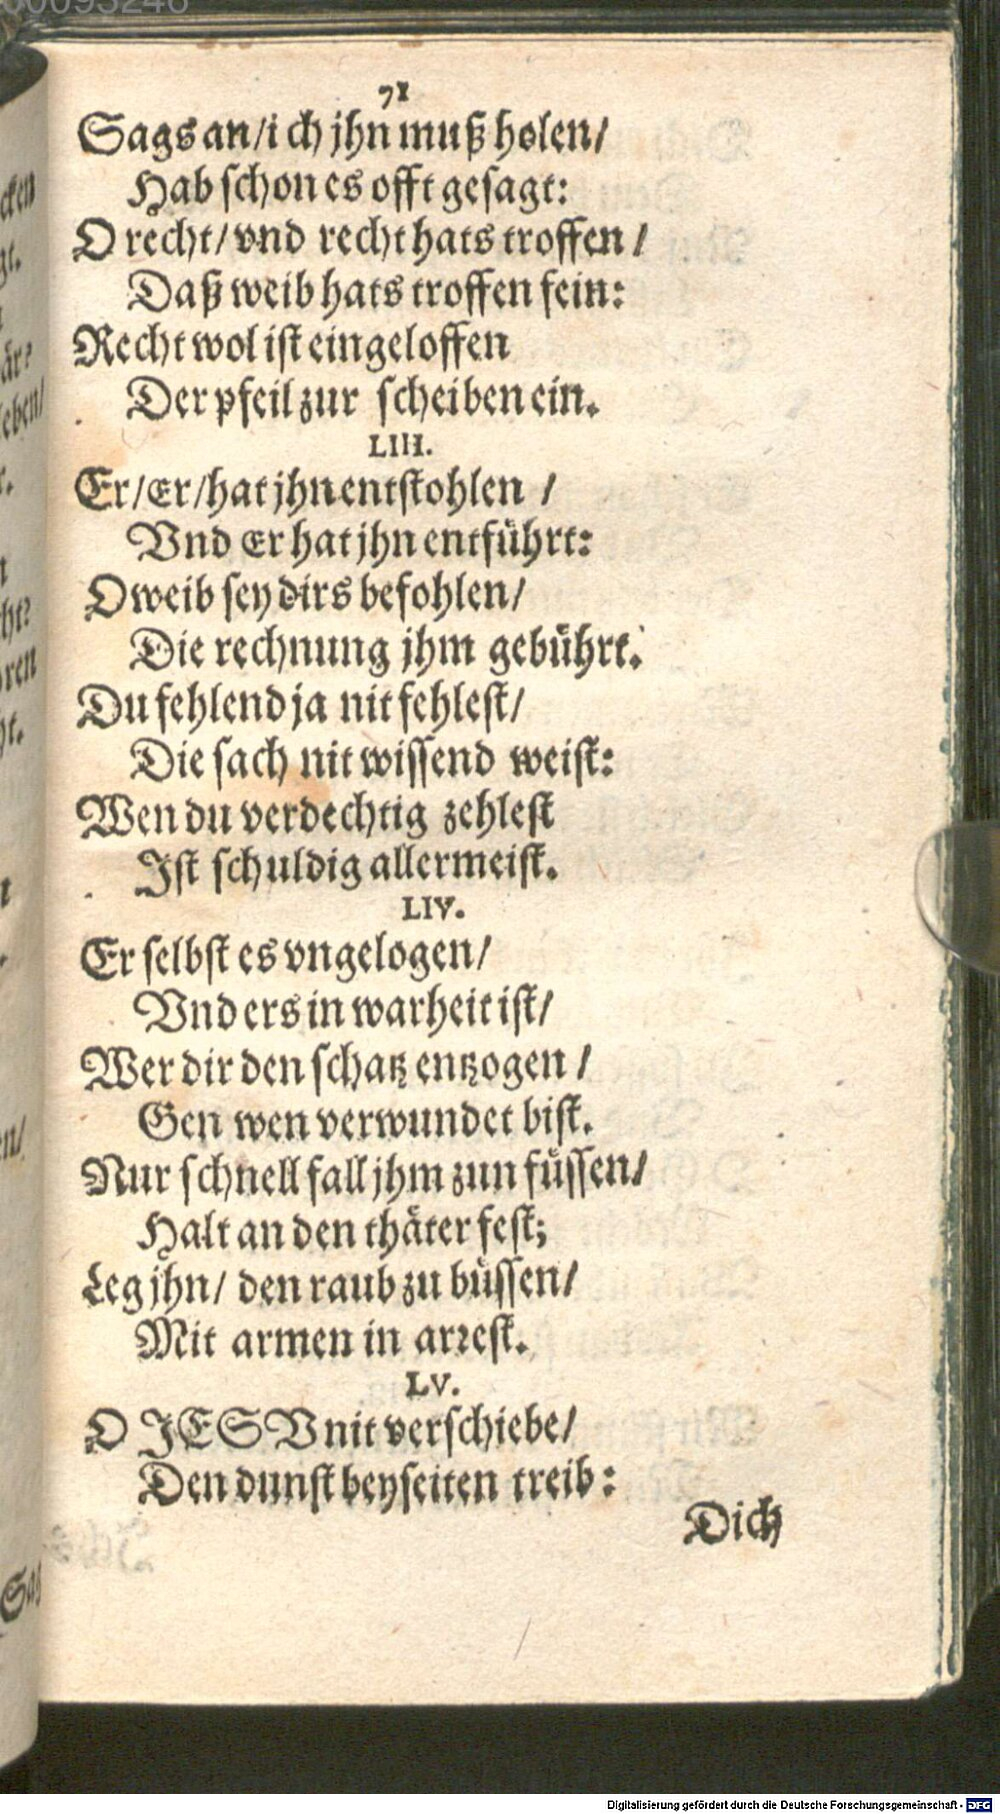 71
Sags an/ich jhn muß holen/
Hab schon es offt gesagt:
O recht/vnd recht hats troffen/
Daß weib hats troffen fein:
Recht wol ist eingeloffen
Der pfeil zur scheiben ein.
LIII.
Er/Er/hat jhn entstohlen /
Vnd Er hat jhn entführt:
O weib sey dirs befohlen/
Die rechnung jhm gebührt.
Du fehlend ja nit fehlest/
Die sach nit wissend weist:
Wen du verdechtig zehlest
Ist schuldig allermeist.
LIV.
Er selbst es vngelogen/
Vnd ers in warheit ist/
Wer dir den schatz entzogen /
Gen wen verwundet bist.
Nur schnell fall jhm zun füssen/
Halt an den thäter fest;
Leg jhn/ den raub zu büssen/
Mit armen in arrest.
LV.
O JESV nit verschiebe/
Den dunst beyseiten treib:
Dich
cken
gt.
är?
leben/
ht?
ren
ht.
en/
Sag
00093246
Digitalisierung gefördert durch die Deutsche Forschungsgemeinschaft - DFG